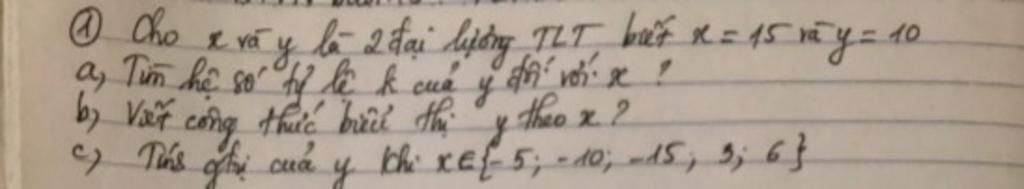 ① Cho x và y là 2 đại lượng TLT biết x = 15 và y = 10
a, Tìm hệ số tỷ lệ k của y đối với x ?
b, Viết công thức biểu thị y theo x ?
c, Tính gtrị của y khi x ∈ {-5; -10; -15; 3; 6}